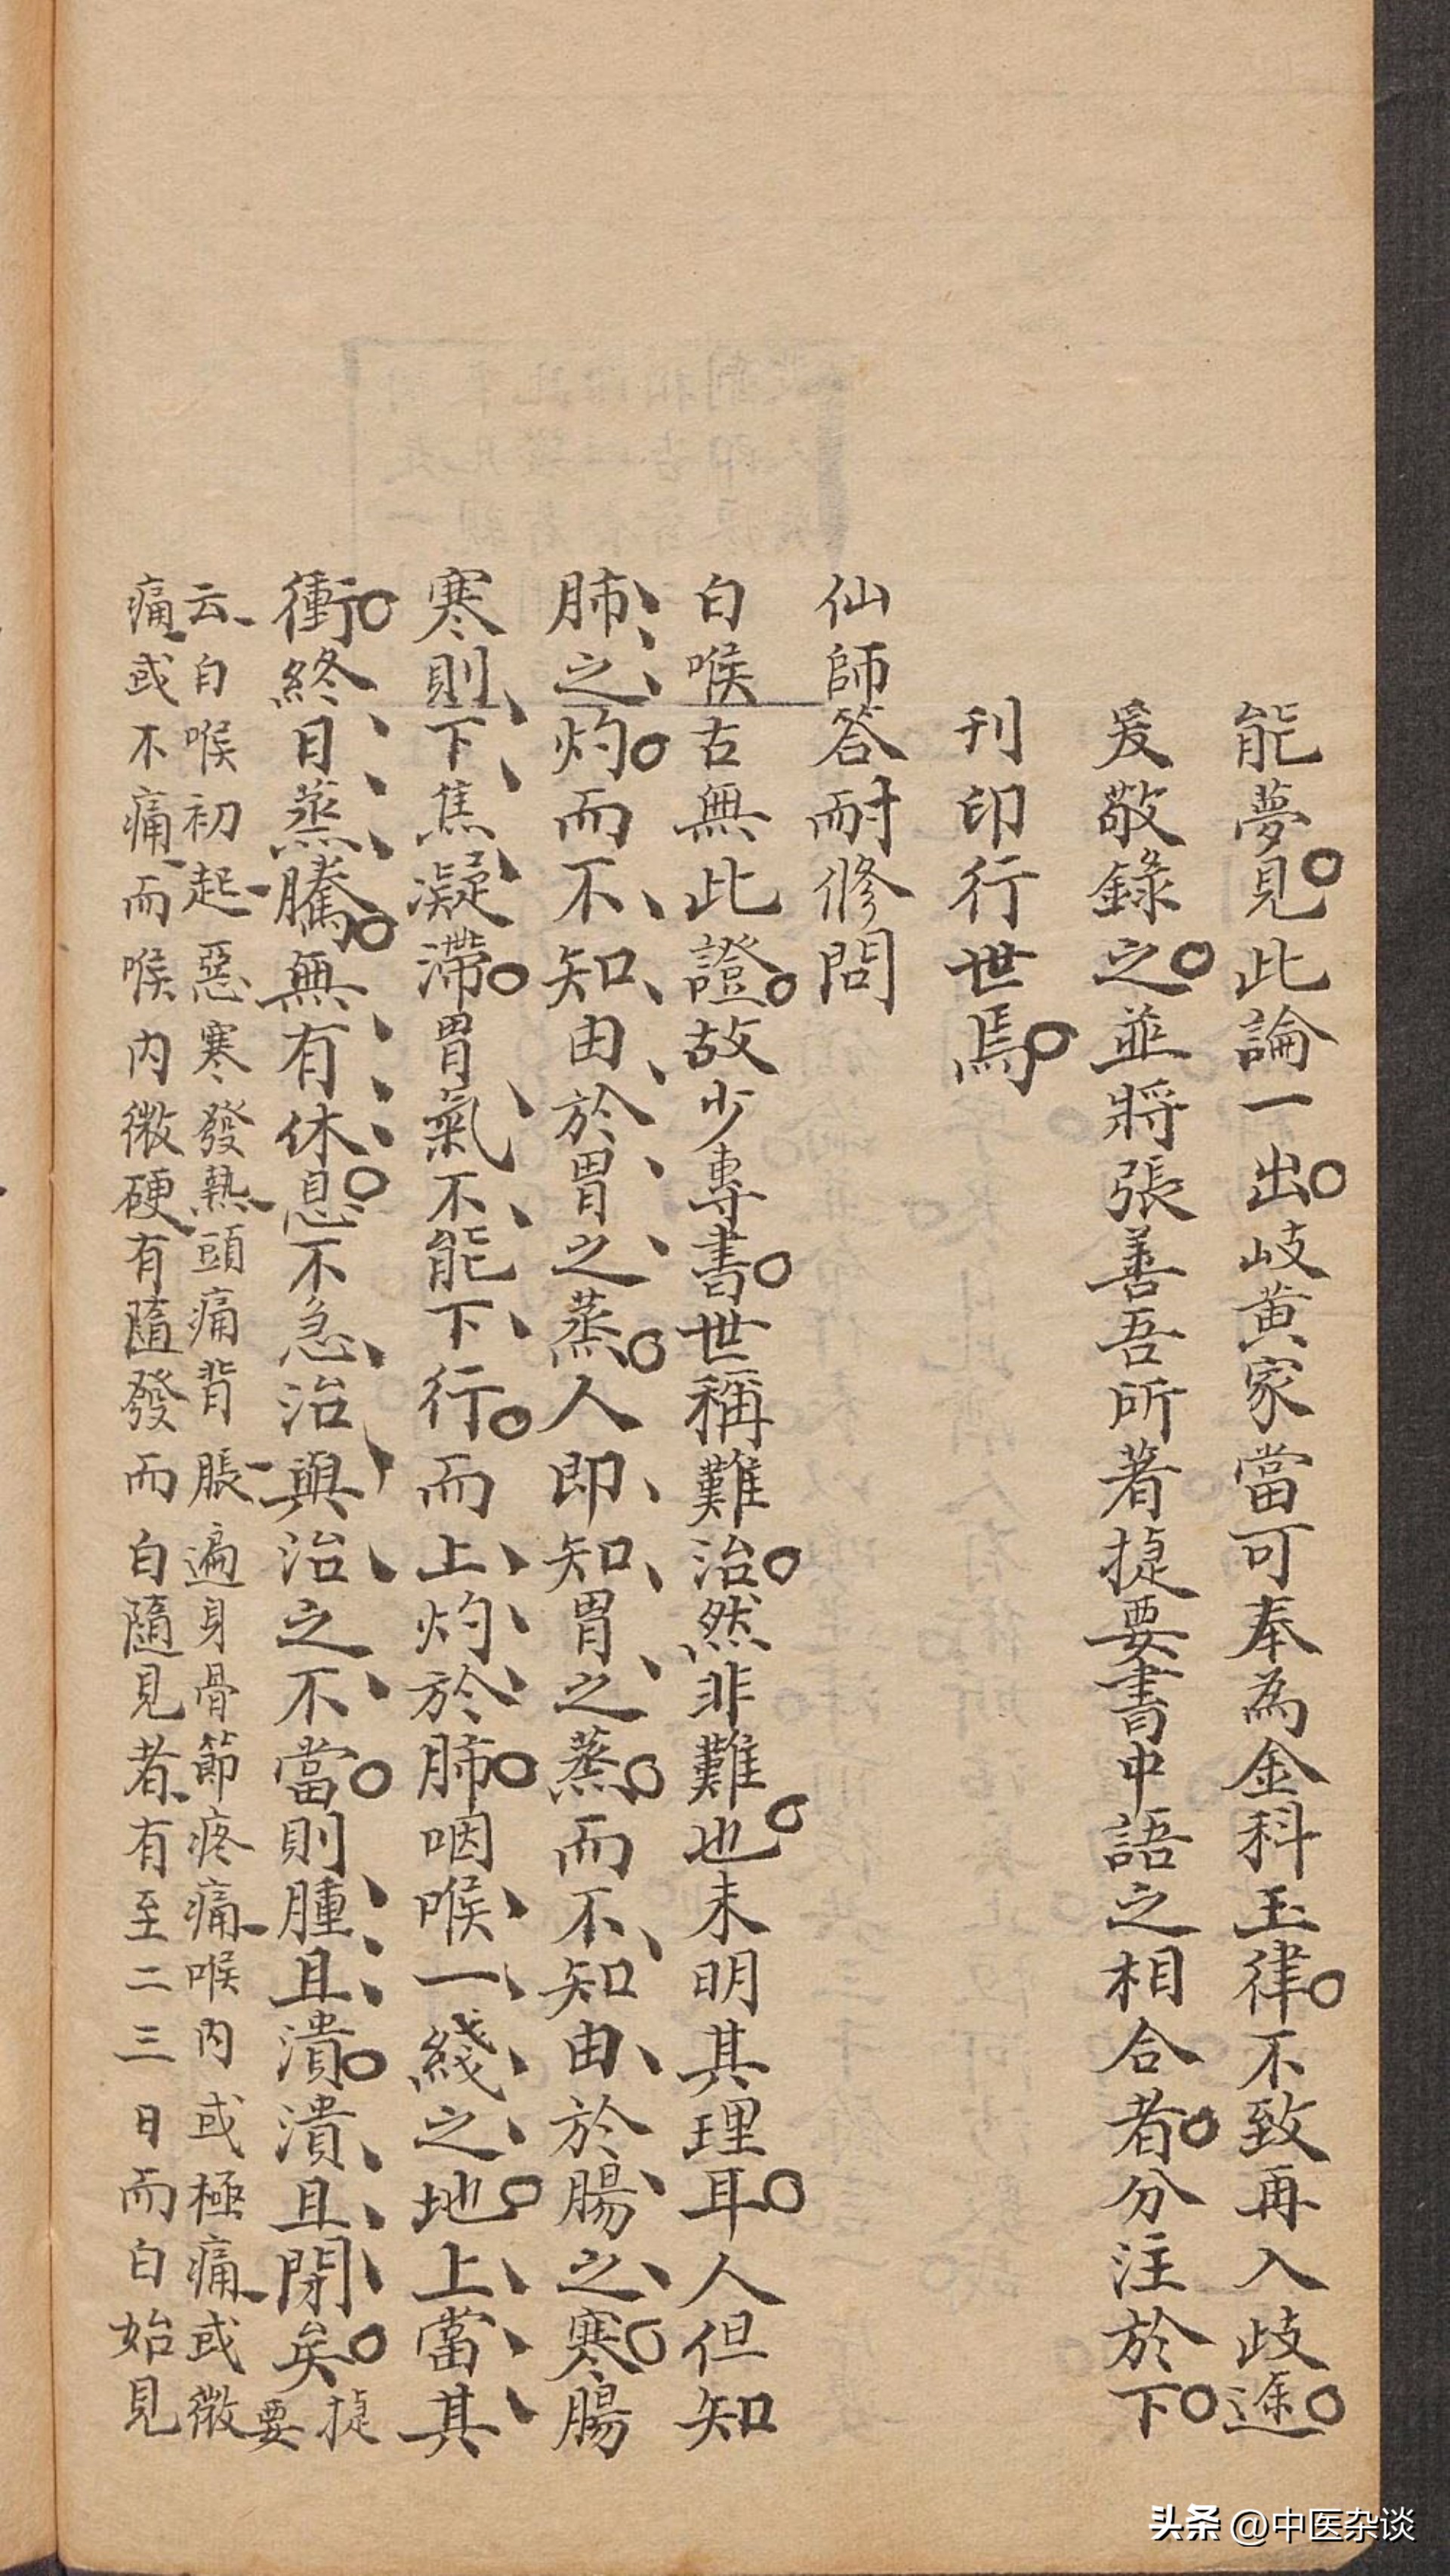 能夢見此論一出岐黄家當可奉為金科玉律不致再入歧途
爰敬錄之並將張善吾所著捷要書中語之相合者分注於下
刊印行世焉
仙師答耐修問
白喉古無此證故少專書世稱難治然非難也未明其理耳人但知
肺之灼而不知由於胃之蒸人即知胃之蒸而不知由於腸之寒腸
寒則下焦凝滯胃氣不能下行而上灼於肺咽喉一綫之地上當其
衝終日蒸騰無有休息不急治與治之不當則腫且潰潰且閉矣捷要
云白喉初起惡寒發熱頭痛背脹遍身骨節疼痛喉内或極痛或微
痛或不痛而喉内微硬有隨發而白隨見者有至二三日而白始見
头条 @中医杂谈